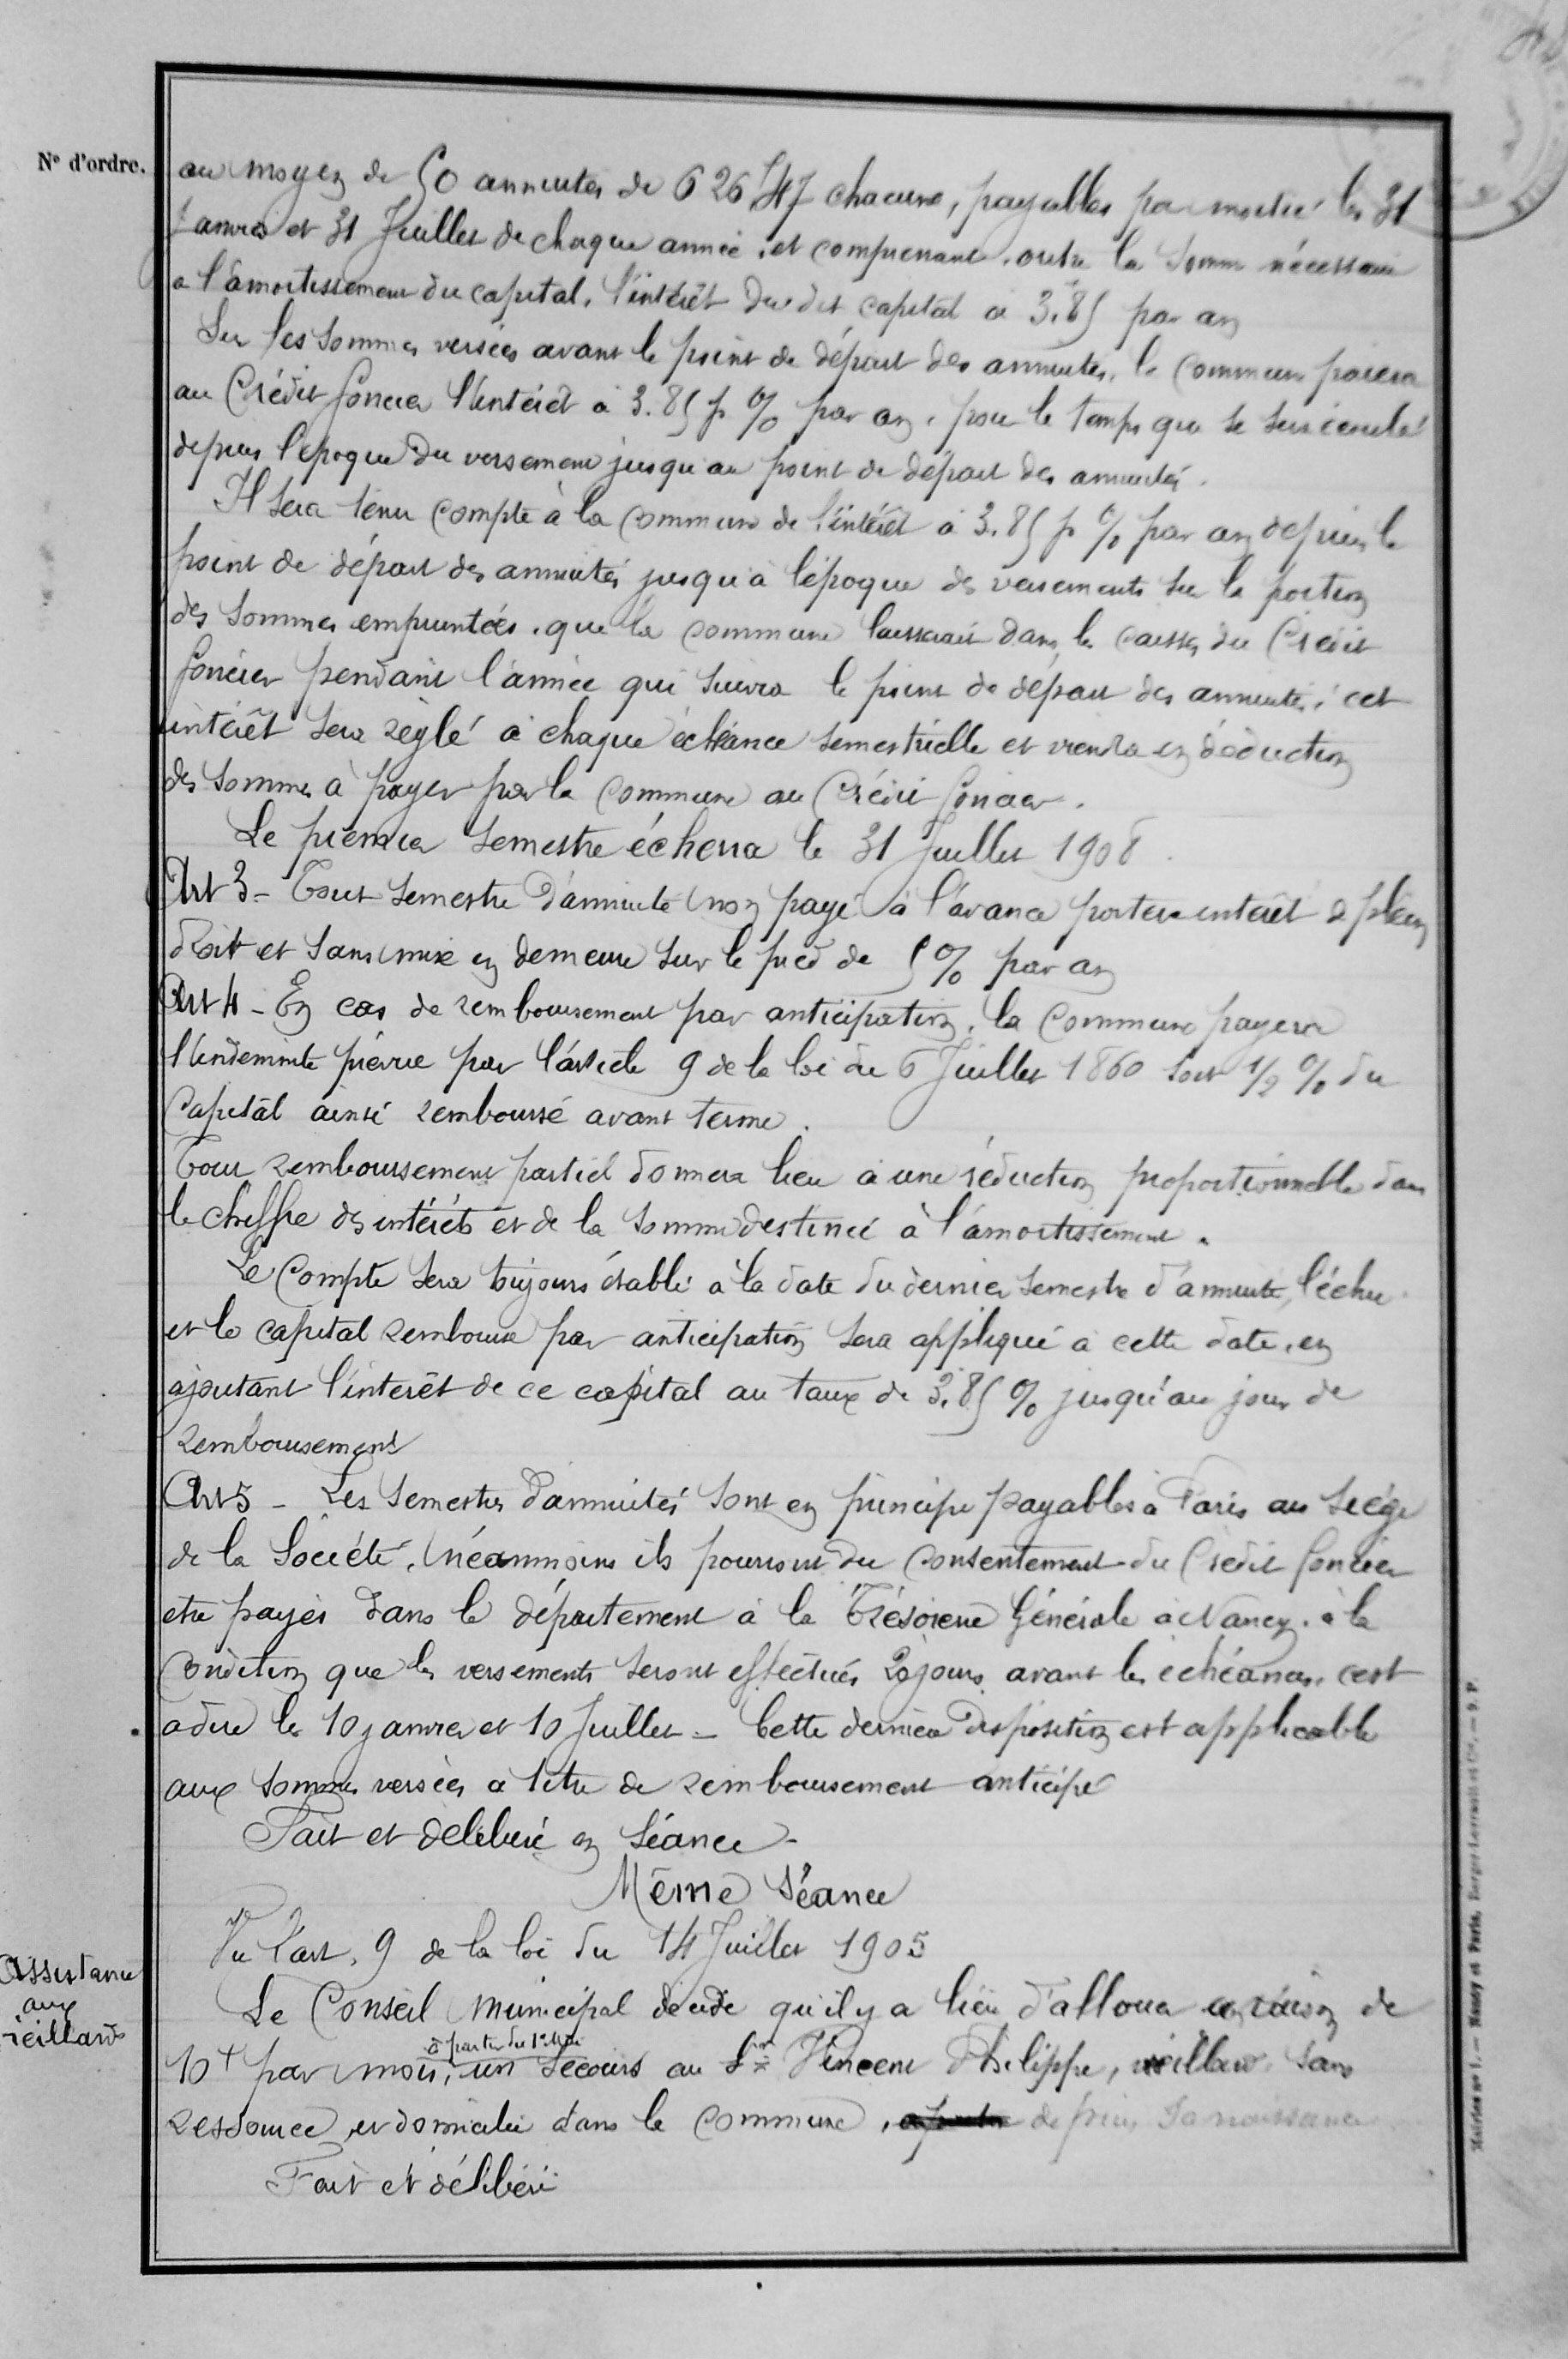 N° d'ordre.
au moyen de 50 annuités de 626,47 chacune, payables par moitié les 31
Janvier et 31 Juillet de chaque année, et comprenant, outre la somme nécessaire
a l'amortissement du capital, l'intérêt du dit capital à 3.85 par an
Sur les sommes versées avant le point de départ des annuités, la commune paiera
au Crédit foncier l'intérêt à 3.85 p % par an, pour le temps qui se sera écoulé
depuis l'époque du versement jusqu'au point de départ des annuités.
Il sera tenu compte à la commune de l'intérêt à 3.85 p % par an depuis le
point de départ des annuités jusqu'à l'époque des versements sur la portion
des sommes empruntées, que la commune laisserait dans les caisses du Crédit
foncier pendant l'année qui suivra le point de départ des annuités; cet
intérêt sera réglé à chaque échéance semestrielle et viendra en déduction
des sommes à payer par la commune au Crédit foncier.
Le premier semestre écherra le 31 Juillet 1908.
Art 3 - Tout semestre d'annuité non payé à l'avance portera intérêt de plein
droit et sans mise en demeure sur le pied de 5 % par an
Art 4 - En cas de remboursement par anticipation, la commune payera
l'indemnité prévue par l'article 9 de la loi du 6 Juillet 1860 soit 1/2 % du
Capital ainsi remboursé avant terme.
Tout remboursement partiel donnera lieu à une réduction proportionnelle dans
le chiffre des intérêts et de la somme destinée à l'amortissement.
Le Compte sera toujours établi à la date du dernier semestre d'annuité, échu
et le capital remboursé par anticipation sera appliqué à cette date, en
ajoutant l'intérêt de ce capital au taux de 3.85 % jusqu'au jour de
remboursement
Art 5 - Les semestres d'annuités sont en principe payables à Paris au siège
de la Société, néanmoins ils pourront du consentement du Crédit foncier
etre payés dans le département à la Trésorerie Générale à Nancy, à la
condition que les versements seront effectués 20 jours avant les échéances, cest
adire les 10 janvier et 10 Juillet - Cette dernière disposition est applicable
aux sommes versées a titre de remboursement anticipé
Fait et délibéré en séance -
Même Séance
Vu l'art. 9 de la loi du 14 Juillet 1905
Assistance
aux
vieillards
Le Conseil municipal décide qu'il y a lieu d'allouer en raison de
à partir du 1er Mai
10f par mois, un secours au Sr Vincent Philippe, vieillard sans
ressource et domicilié dans la commune, depuis sa naissance
Fait et délibéré
Mairies n° 1. — Nancy et Paris, Berger-Levrault et Cie. — 9. P.